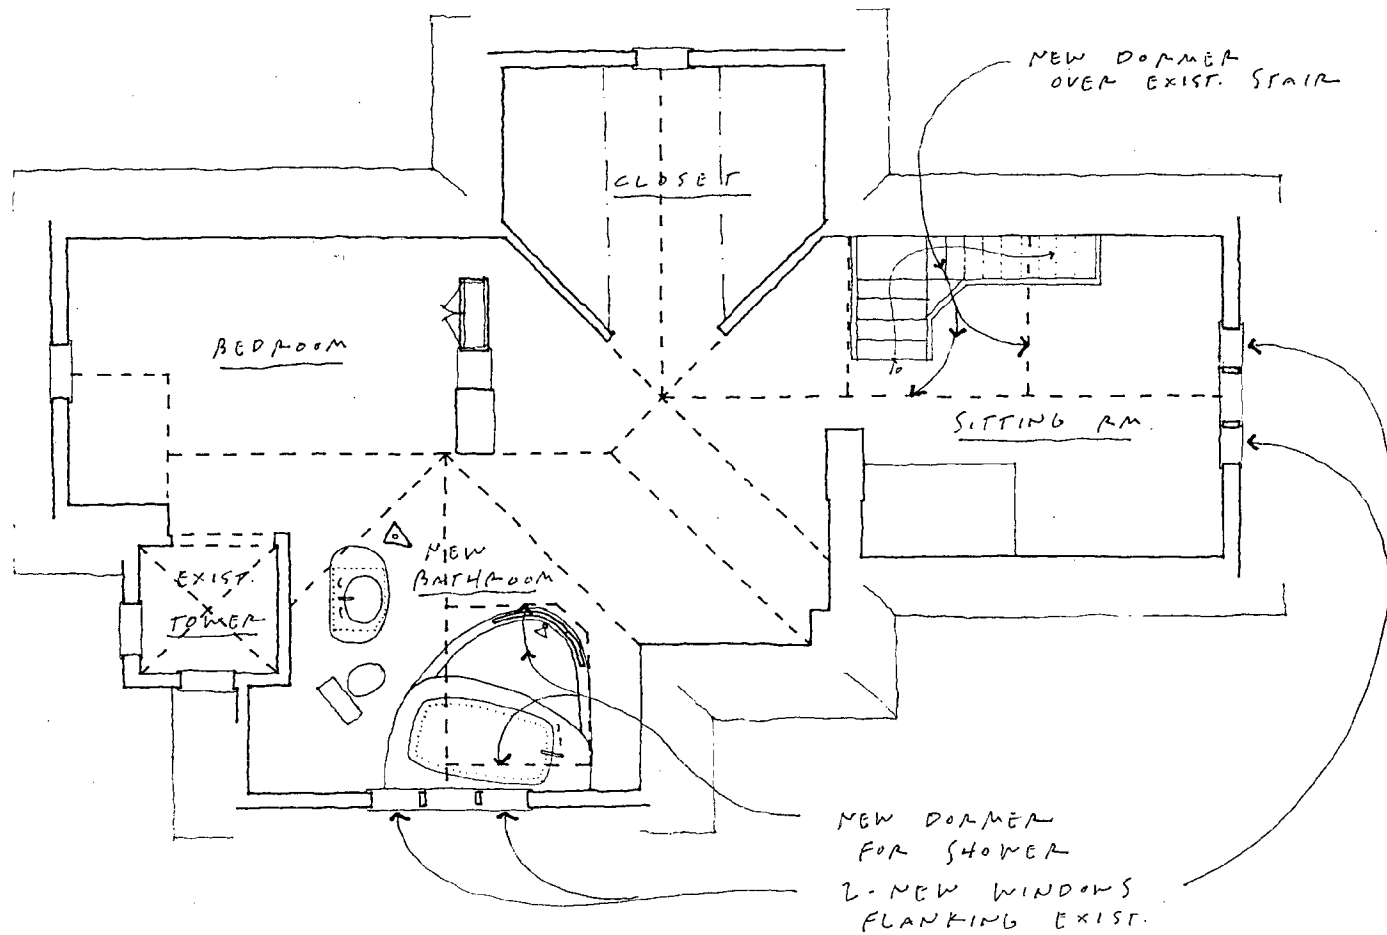 NEW DORMER
OVER EXIST. STAIR
CLOSET
BEDROOM
SITTING RM.
NEW
BATHROOM
EXIST.
TOWER
NEW DORMER
FOR SHOWER
2-NEW WINDOWS
FLANKING EXIST.